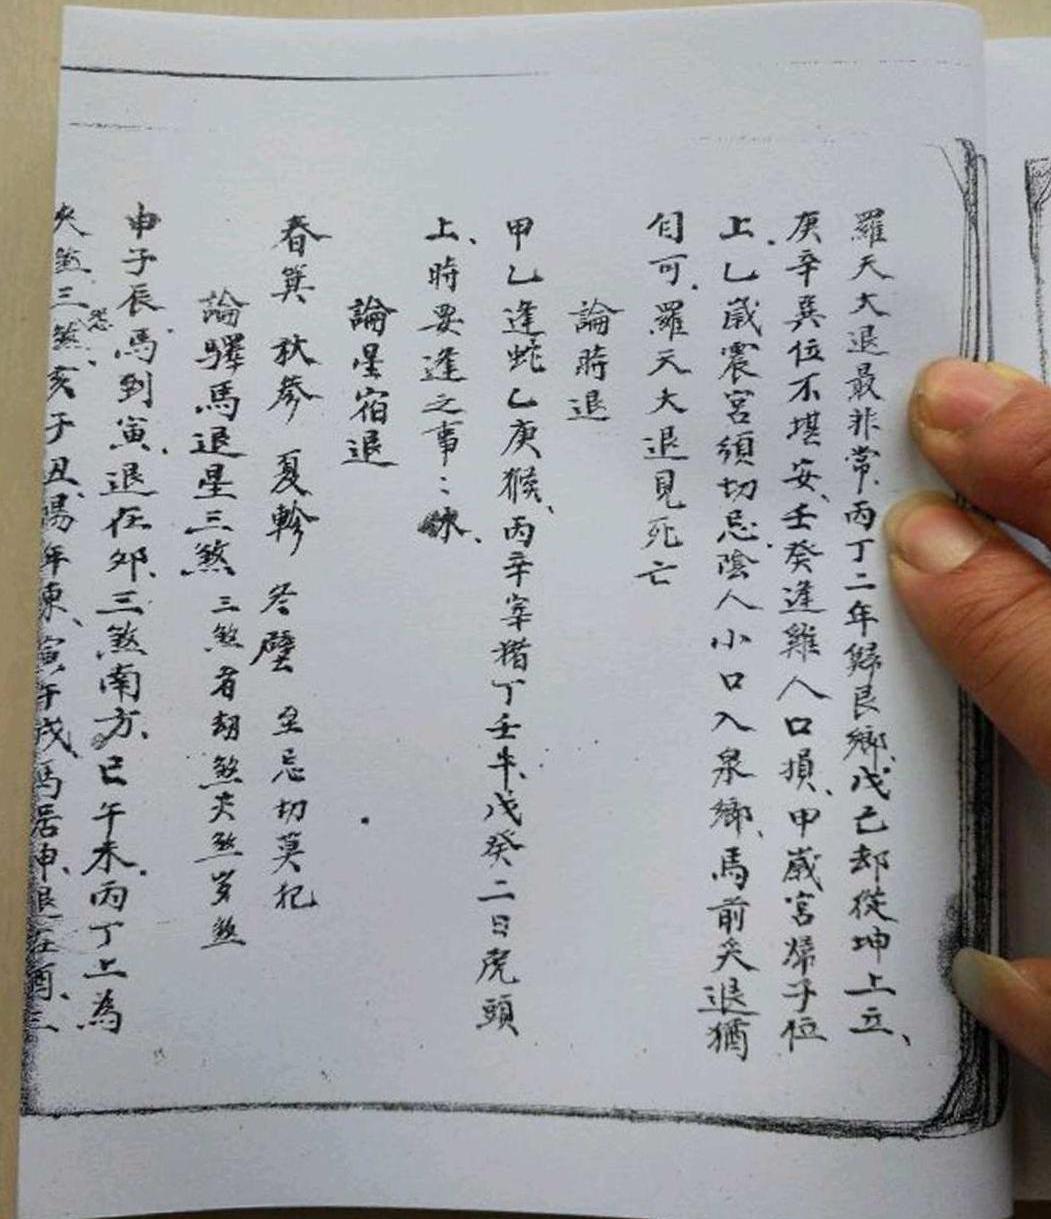 羅天大退最非常、丙丁二年歸艮鄉、戊己却從坤上立、
庚辛巽位不堪安、壬癸逢雞人口損、甲歲宮歸子位
上、乙歲震宮須切忌、陰人小口入泉鄉、馬前矢退猶
自可、羅天大退見死亡
論時退
甲乙逢蛇乙庚猴、丙辛宰猪丁壬牛、戊癸二日虎頭
上、時要逢之事
論星宿退
春箕 秋參 夏軫 冬壁 全忌切莫犯
論驛馬退星三煞 三煞有劫煞夾煞歲煞
申子辰、馬到寅、退在卯、三煞南方、巳午未、丙丁上為
夾煞、三煞、亥子丑、陽年東、寅午戌、馬居申、退在酉、三